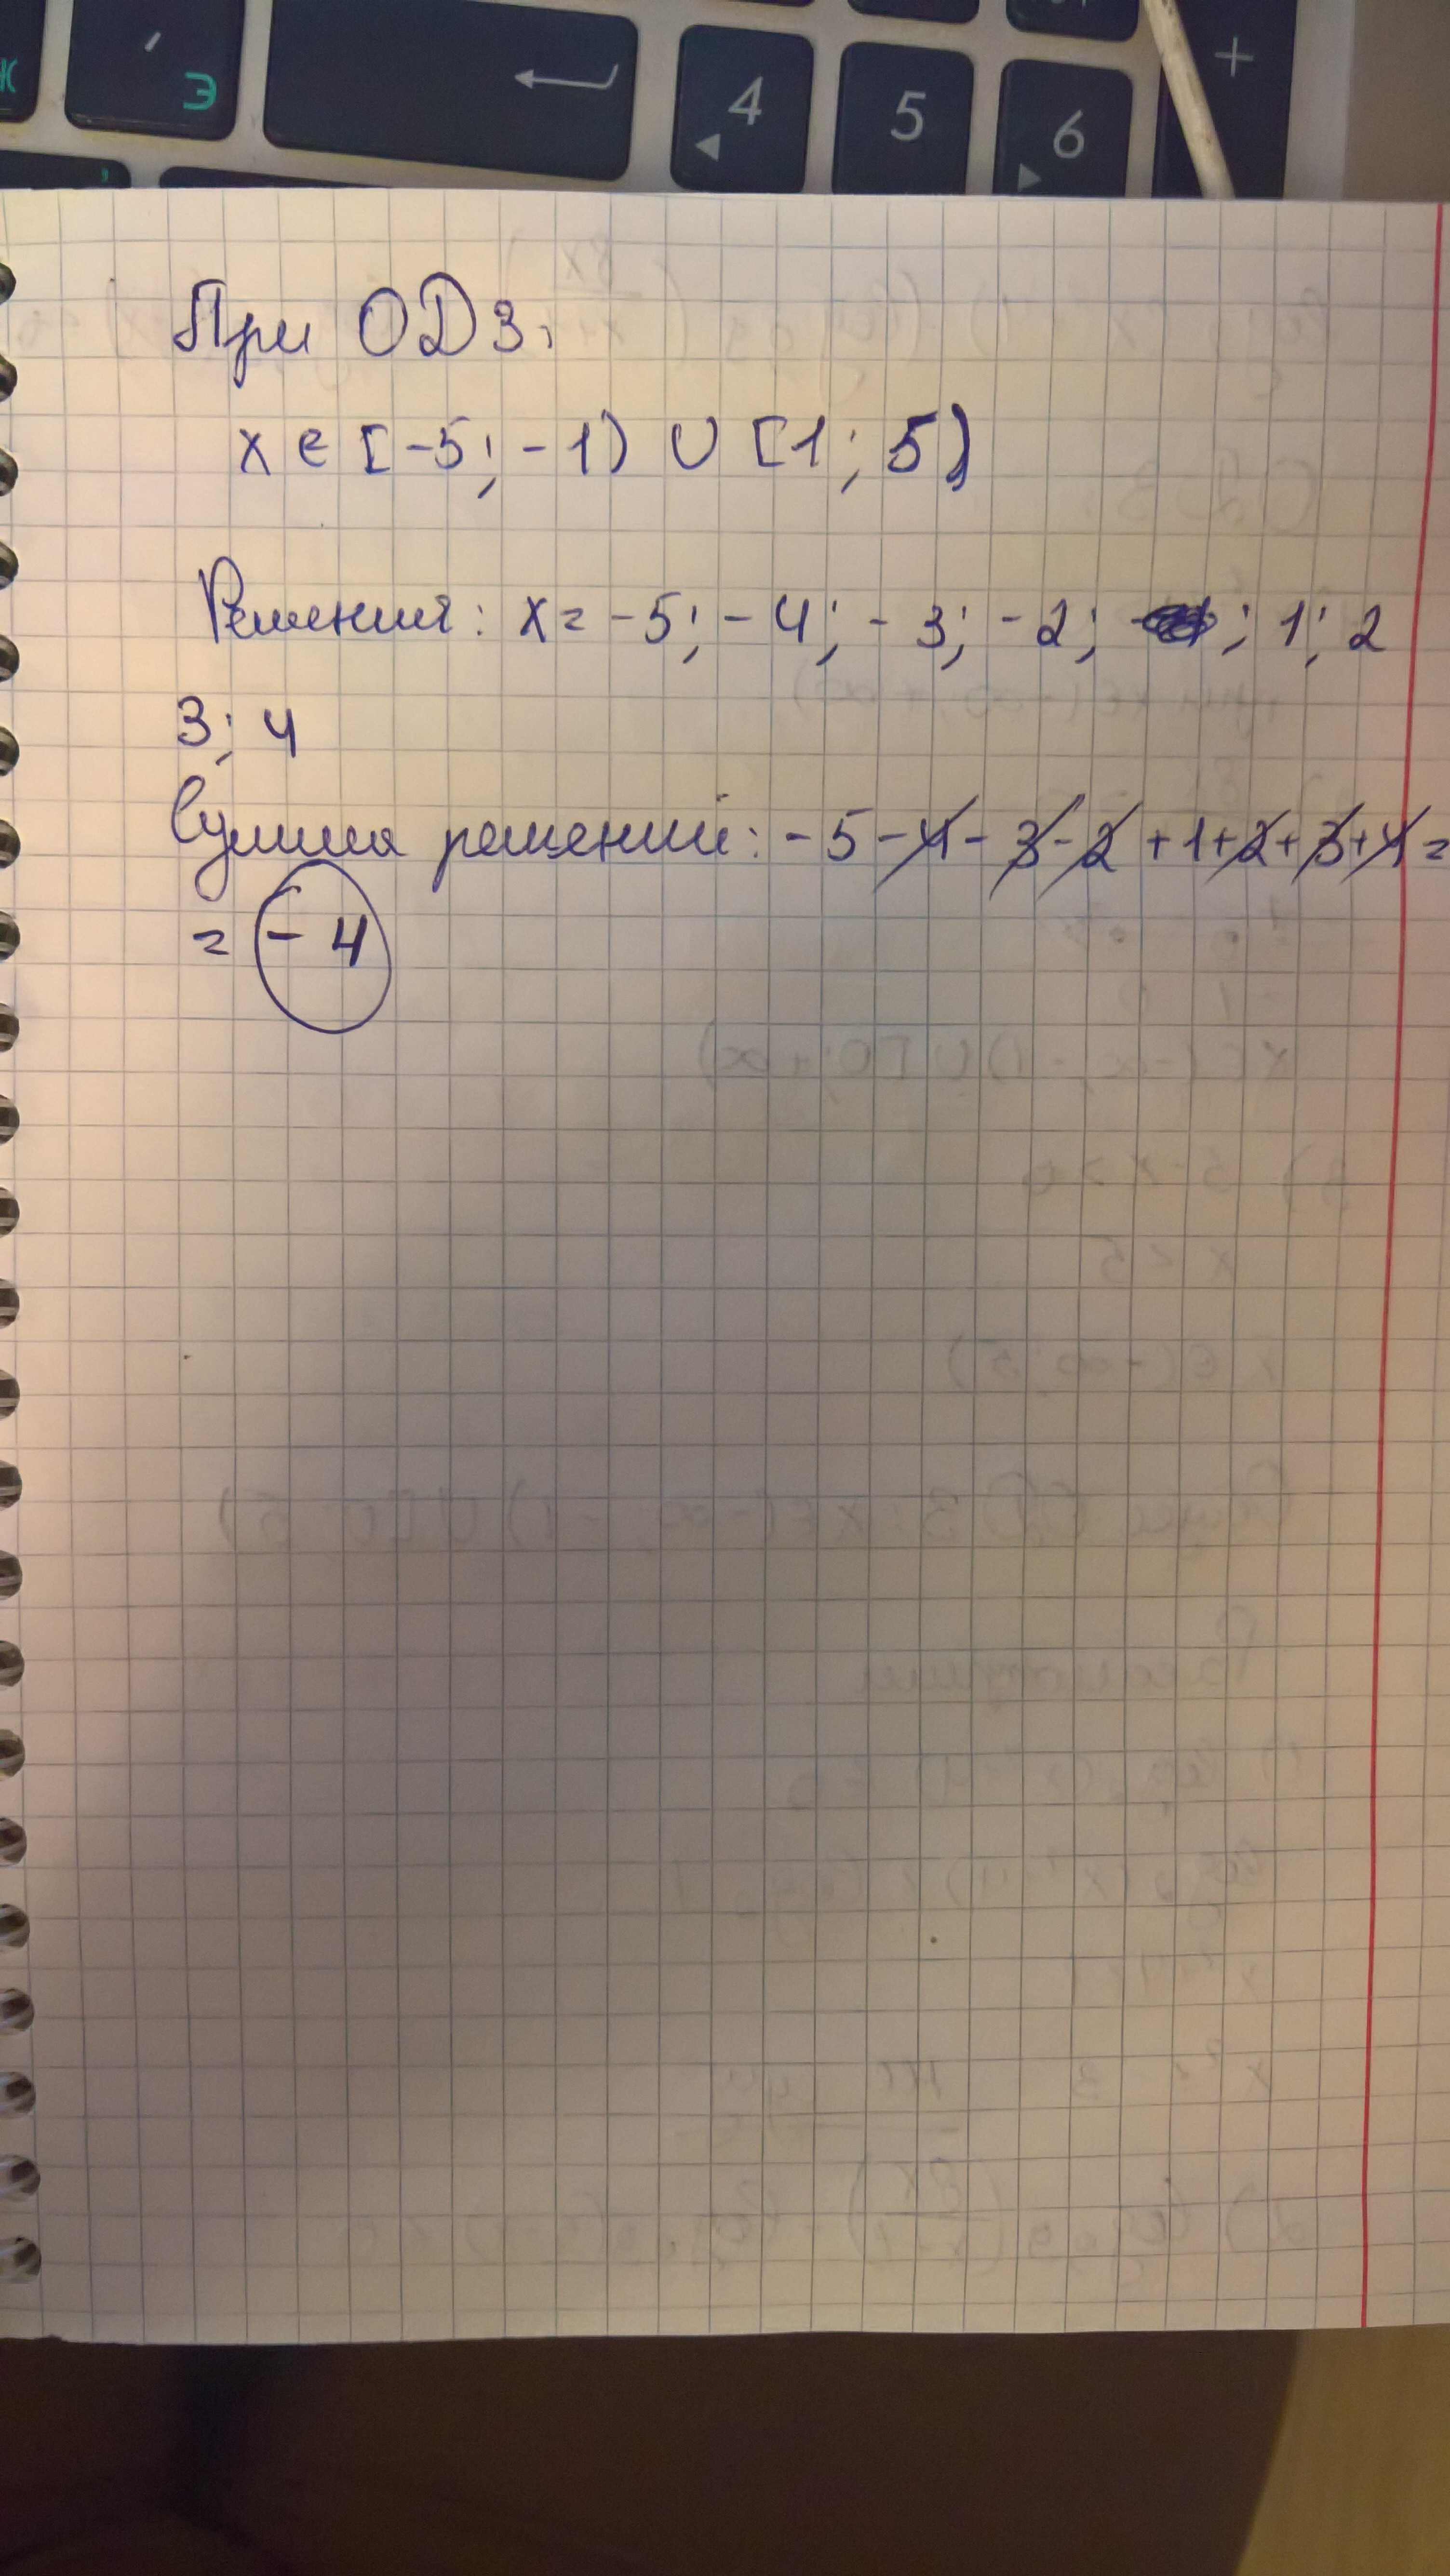 Э
4
5
6
+
При ОДЗ:
x ∈ [-5; -1) ∪ [1; 5)
Решения: x = -5; -4; -3; -2; ; 1; 2
3; 4
Сумма решений: -5-4-3-2+1+2+3+4=
= -4